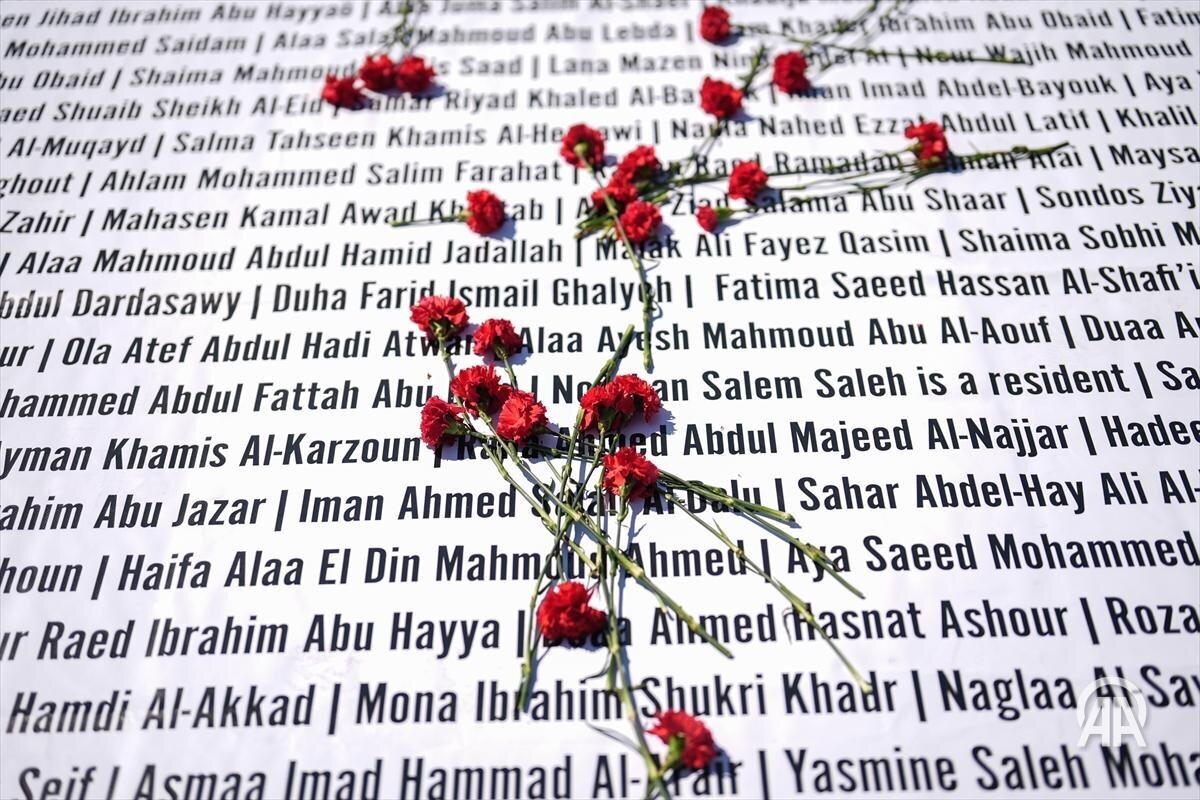 Jihad Ibrahim Abu Hayyad | Juma Salim
Mohammed Saidam | Alaa Mahmoud Abu Lebda | Khader Ibrahim Abu Obaid | Fatima
Obaid | Shaima Mahmoud Saad | Lana Mazen | Nour Wajih Mahmoud
Shuaib Sheikh Al-Eid | Samar Riyad Khaled | Iman Imad Abdel-Bayouk | Aya
Al-Muqayd | Salma Tahseen Khamis | Nahed Ezzat Abdul Latif | Khalil
ghout | Ahlam Mohammed Salim Farahat | Raed Ramadan | Maysa
Zahir | Mahasen Kamal Awad | Ziad Salama Abu Shaar | Sondos Ziy
| Alaa Mahmoud Abdul Hamid Jadallah | Malak Ali Fayez Qasim | Shaima Sobhi M
bdul Dardasawy | Duha Farid Ismail Ghalyeh | Fatima Saeed Hassan Al-Shafi'i
ur | Ola Atef Abdul Hadi | Alaa Ayesh Mahmoud Abu Al-Aouf | Duaa A
hammed Abdul Fattah Abu | Salem Saleh is a resident | Sa
yman Khamis Al-Karzoun | Rana Ahmed Abdul Majeed Al-Najjar | Hadee
ahim Abu Jazar | Iman Ahmed Al-Dalu | Sahar Abdel-Hay Ali Al-
houn | Haifa Alaa El Din Mahmoud Ahmed | Aya Saeed Mohammed
ur Raed Ibrahim Abu Hayya | Ahmed Hasnat Ashour | Roza
Hamdi Al-Akkad | Mona Ibrahim Shukri Khadr | Naglaa Al-Say
Seif | Asmaa Imad Hammad | Yasmine Saleh Moha
AA